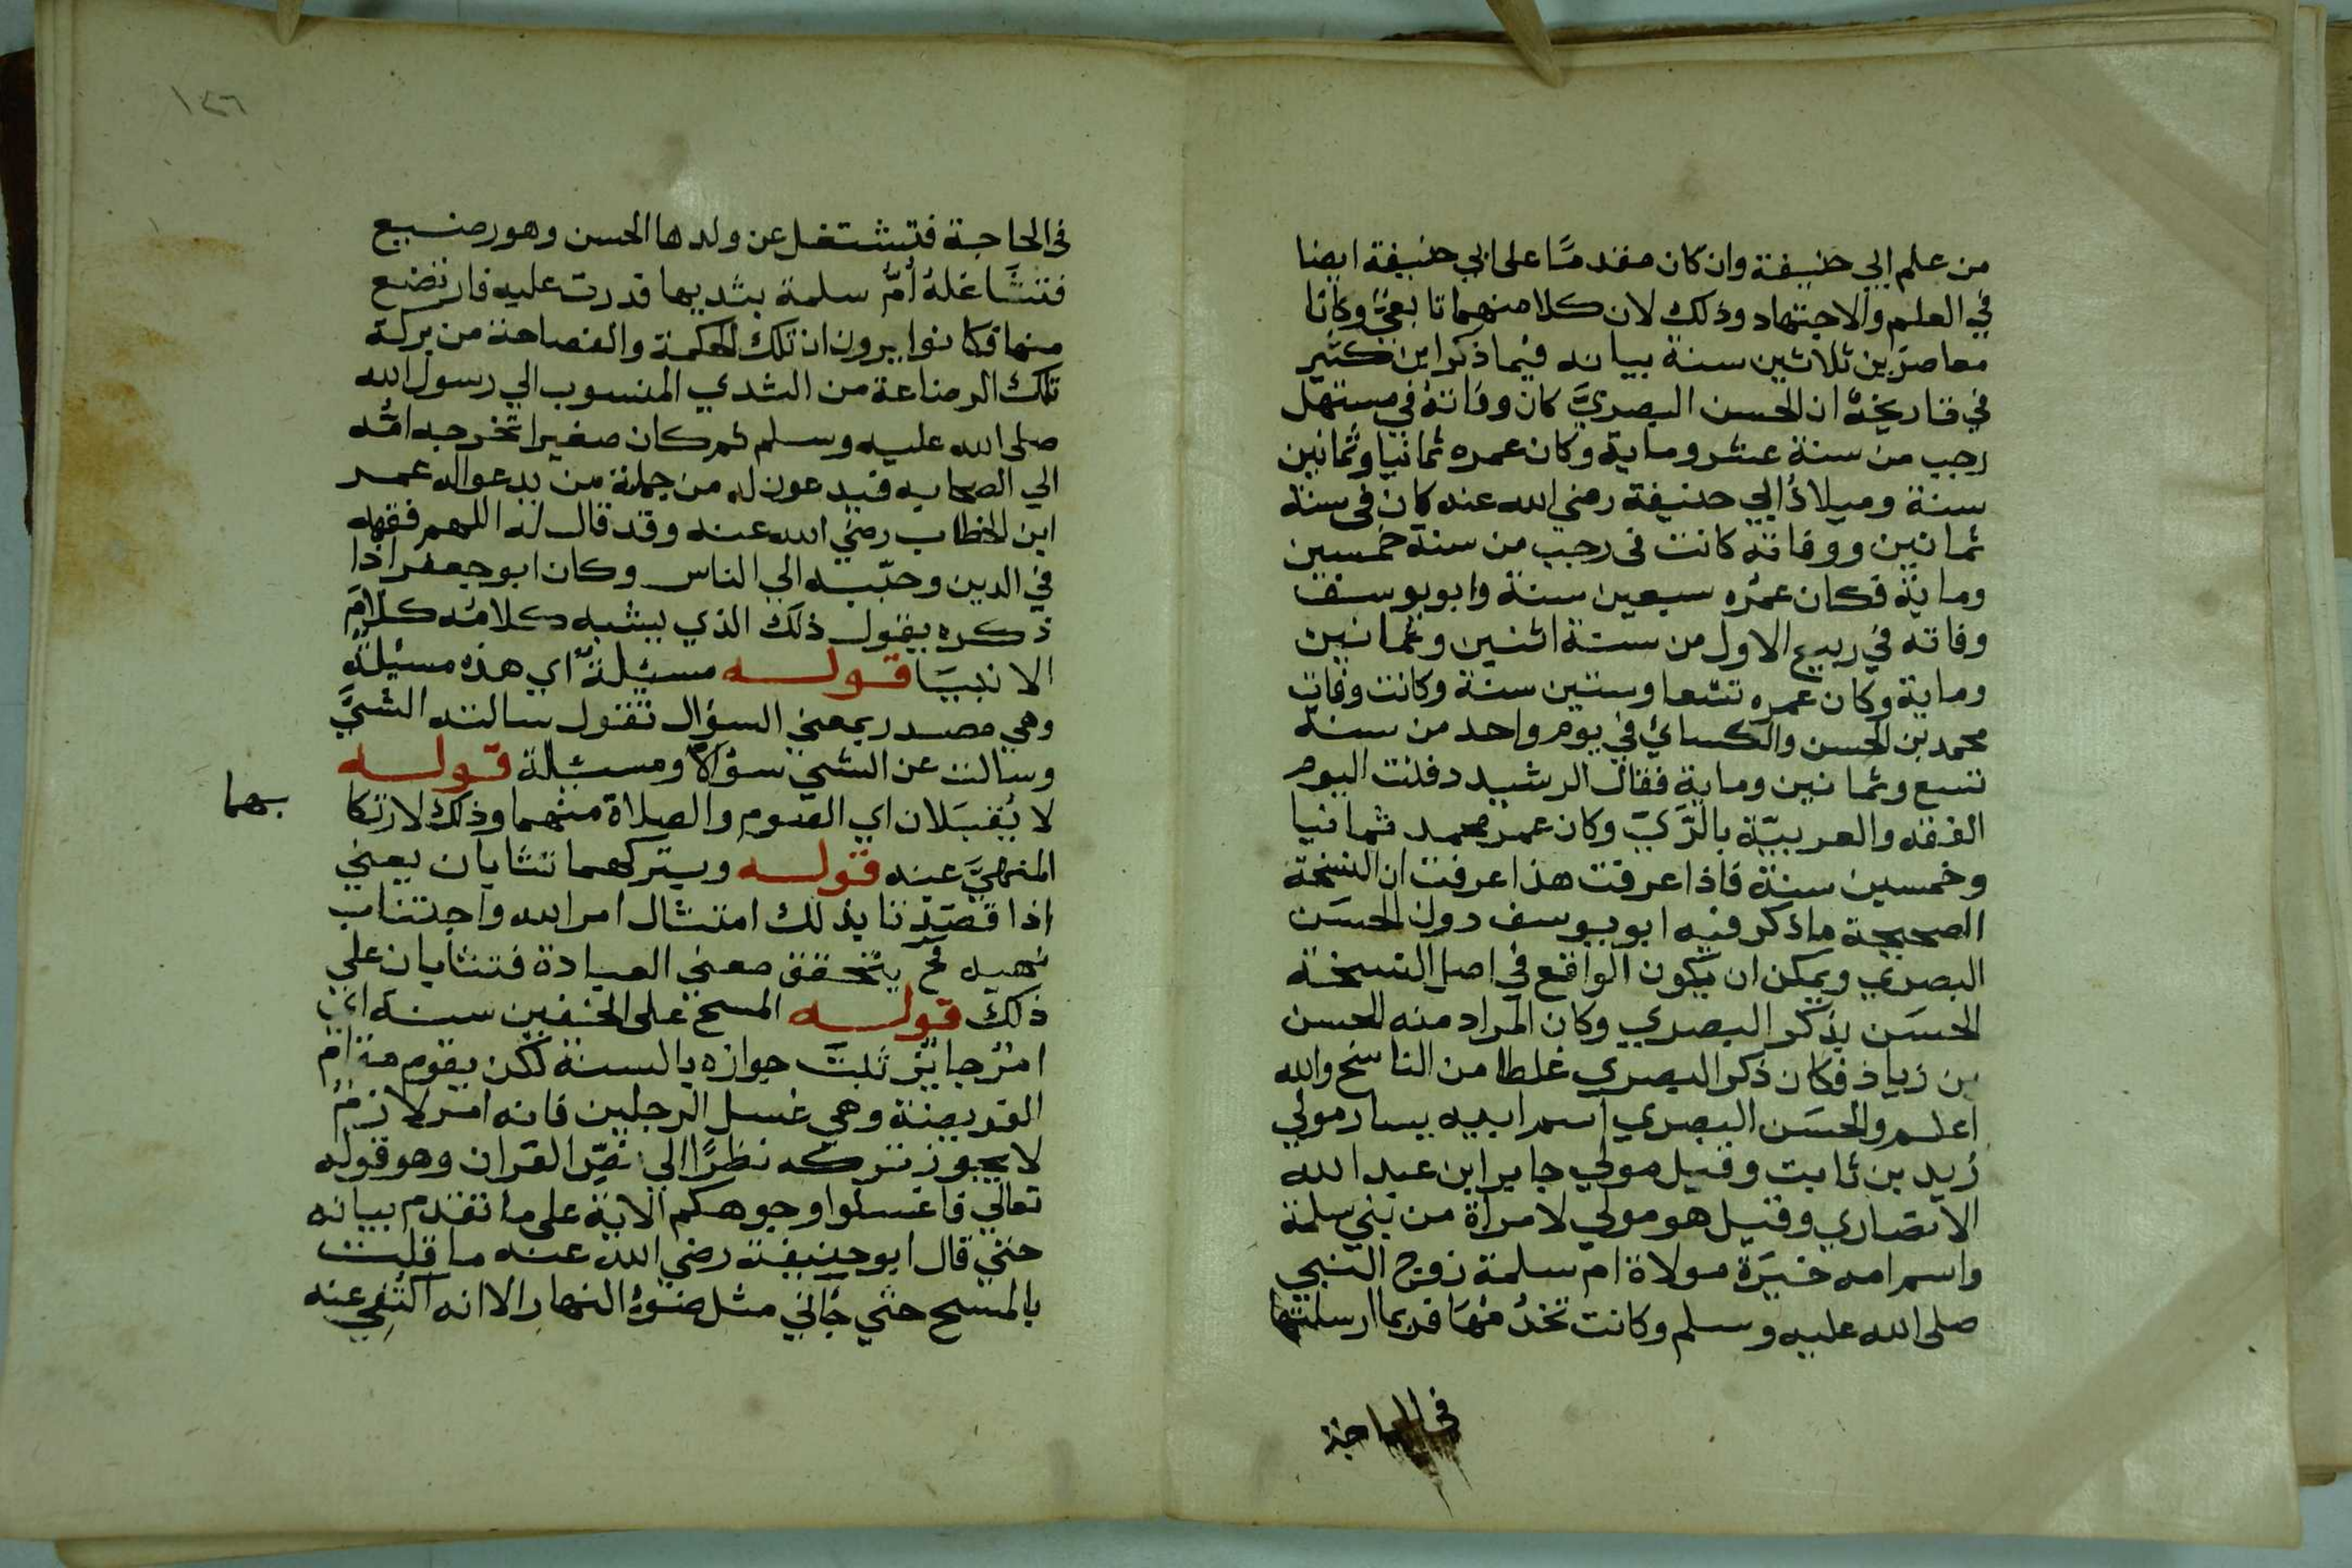 من علم ابي حنيفة وان كان مقدمًا على ابي حنيفة ايضا
في العلم والاجتهاد وذلك لان كلا منهما تابعيّ وكانا
معاصرين ثلاثين سنة بيانه فيما ذكر ابن كثير
في تاريخه ان الحسن البصريَّ كان وفاته في مستهل
رجب من سنة عشر وماية وكان عمره ثمانيا وثمانين
سنة وميلادُ ابي حنيفة رضي الله عنه كان في سنة
ثمانين ووفاته كانت في رجب من سنة خمسين
وماية فكان عمره سبعين سنة وابو يوسف
وفاته في ربيع الاول من سنة اثنين وثمانين
وماية وكان عمره تسعا وستين سنة وكانت وفات
محمد بن الحسن والكسائي في يوم واحد من سنة
تسع وثمانين وماية فقال الرشيد دفنت اليوم
الفقه والعربيّة بالرَّيّ وكان عمر محمد ثمانيا
وخمسين سنة فاذا عرفت هذا عرفت ان النسخة
الصحيحة ما ذكر فيه ابو يوسف دون الحسَن
البصري ويمكن ان يكون الواقع في اصل النسخة
الحسَن بذكر البصري وكان المراد منه الحسن
بن زياد فكان ذكر البصري غلطا من الناسخ والله
اعلم والحسَن البصري اسم ابيه يسار مولي
زيد بن ثابت وقيل مولي جابر ابن عبد الله
الانصاري وقيل هو مولي لامراة من بني سلمة
واسم امه خيَرة مولاة ام سلمة زوج النبي
صلى الله عليه وسلم وكانت تخدُمُهَا فربما ارسلتها
في الحاجة
١٤٦
في الحاجة فتشتغل عن ولدها الحسن وهو رضيع
فتشَاغلهُ اُمُّ سلمة بثديها فدرت عليه فارتضع
منها فكانوا يرون ان تلك الحكمة والفصاحة من بركة
تلك الرضاعة من الثدي المنسوب الي رسول الله
صلى الله عليه وسلم ثم كان صغيرا تخرجه امُّه
الي الصحابه فيدعون له من جملة من يدعو اله عمر
ابن الخطاب رضي الله عنه وقد قال له اللهم فقهه
في الدين وحبّبه الي الناس وكان ابو جعفر اذا
ذكره يقول ذلك الذي يشبه كلامُه كلامَ
الانبيَا قوله مسئلةٌ اي هذه مسئلة
وهي مصدر بمعني السؤال تقول سالته الشيَّ
وسالت عن الشيّ سؤالًا ومسئلة قوله
لا يُقبَلان اي الصوم والصلاة منهما وذلك لارتكا
بهما
المنهيَّ عنه قوله وبتركهما تثابان يعني
اذا قصَدتا بذلك امتثال امر الله واجتناب
نهيه فح يتحقق معني العبادة فتثابان علي
ذلك قوله المسح على الخفين سنة اي
امرٌ جايزٌ ثبتَ جوازه بالسنة لكن يقوم مقام
الفريضة وهي غسل الرجلين فانه امر لازمٌ
لا يجوز تركه نظرًا الي نصّ القران وهو قوله
تعالي فاغسلوا وجوهكم الاية على ما تقدم بيانه
حتي قال ابو حنيفة رضي الله عنه ما قلت
بالمسح حتي جاني مثل ضوءُ النهار الا انه اكتُفِي عنه